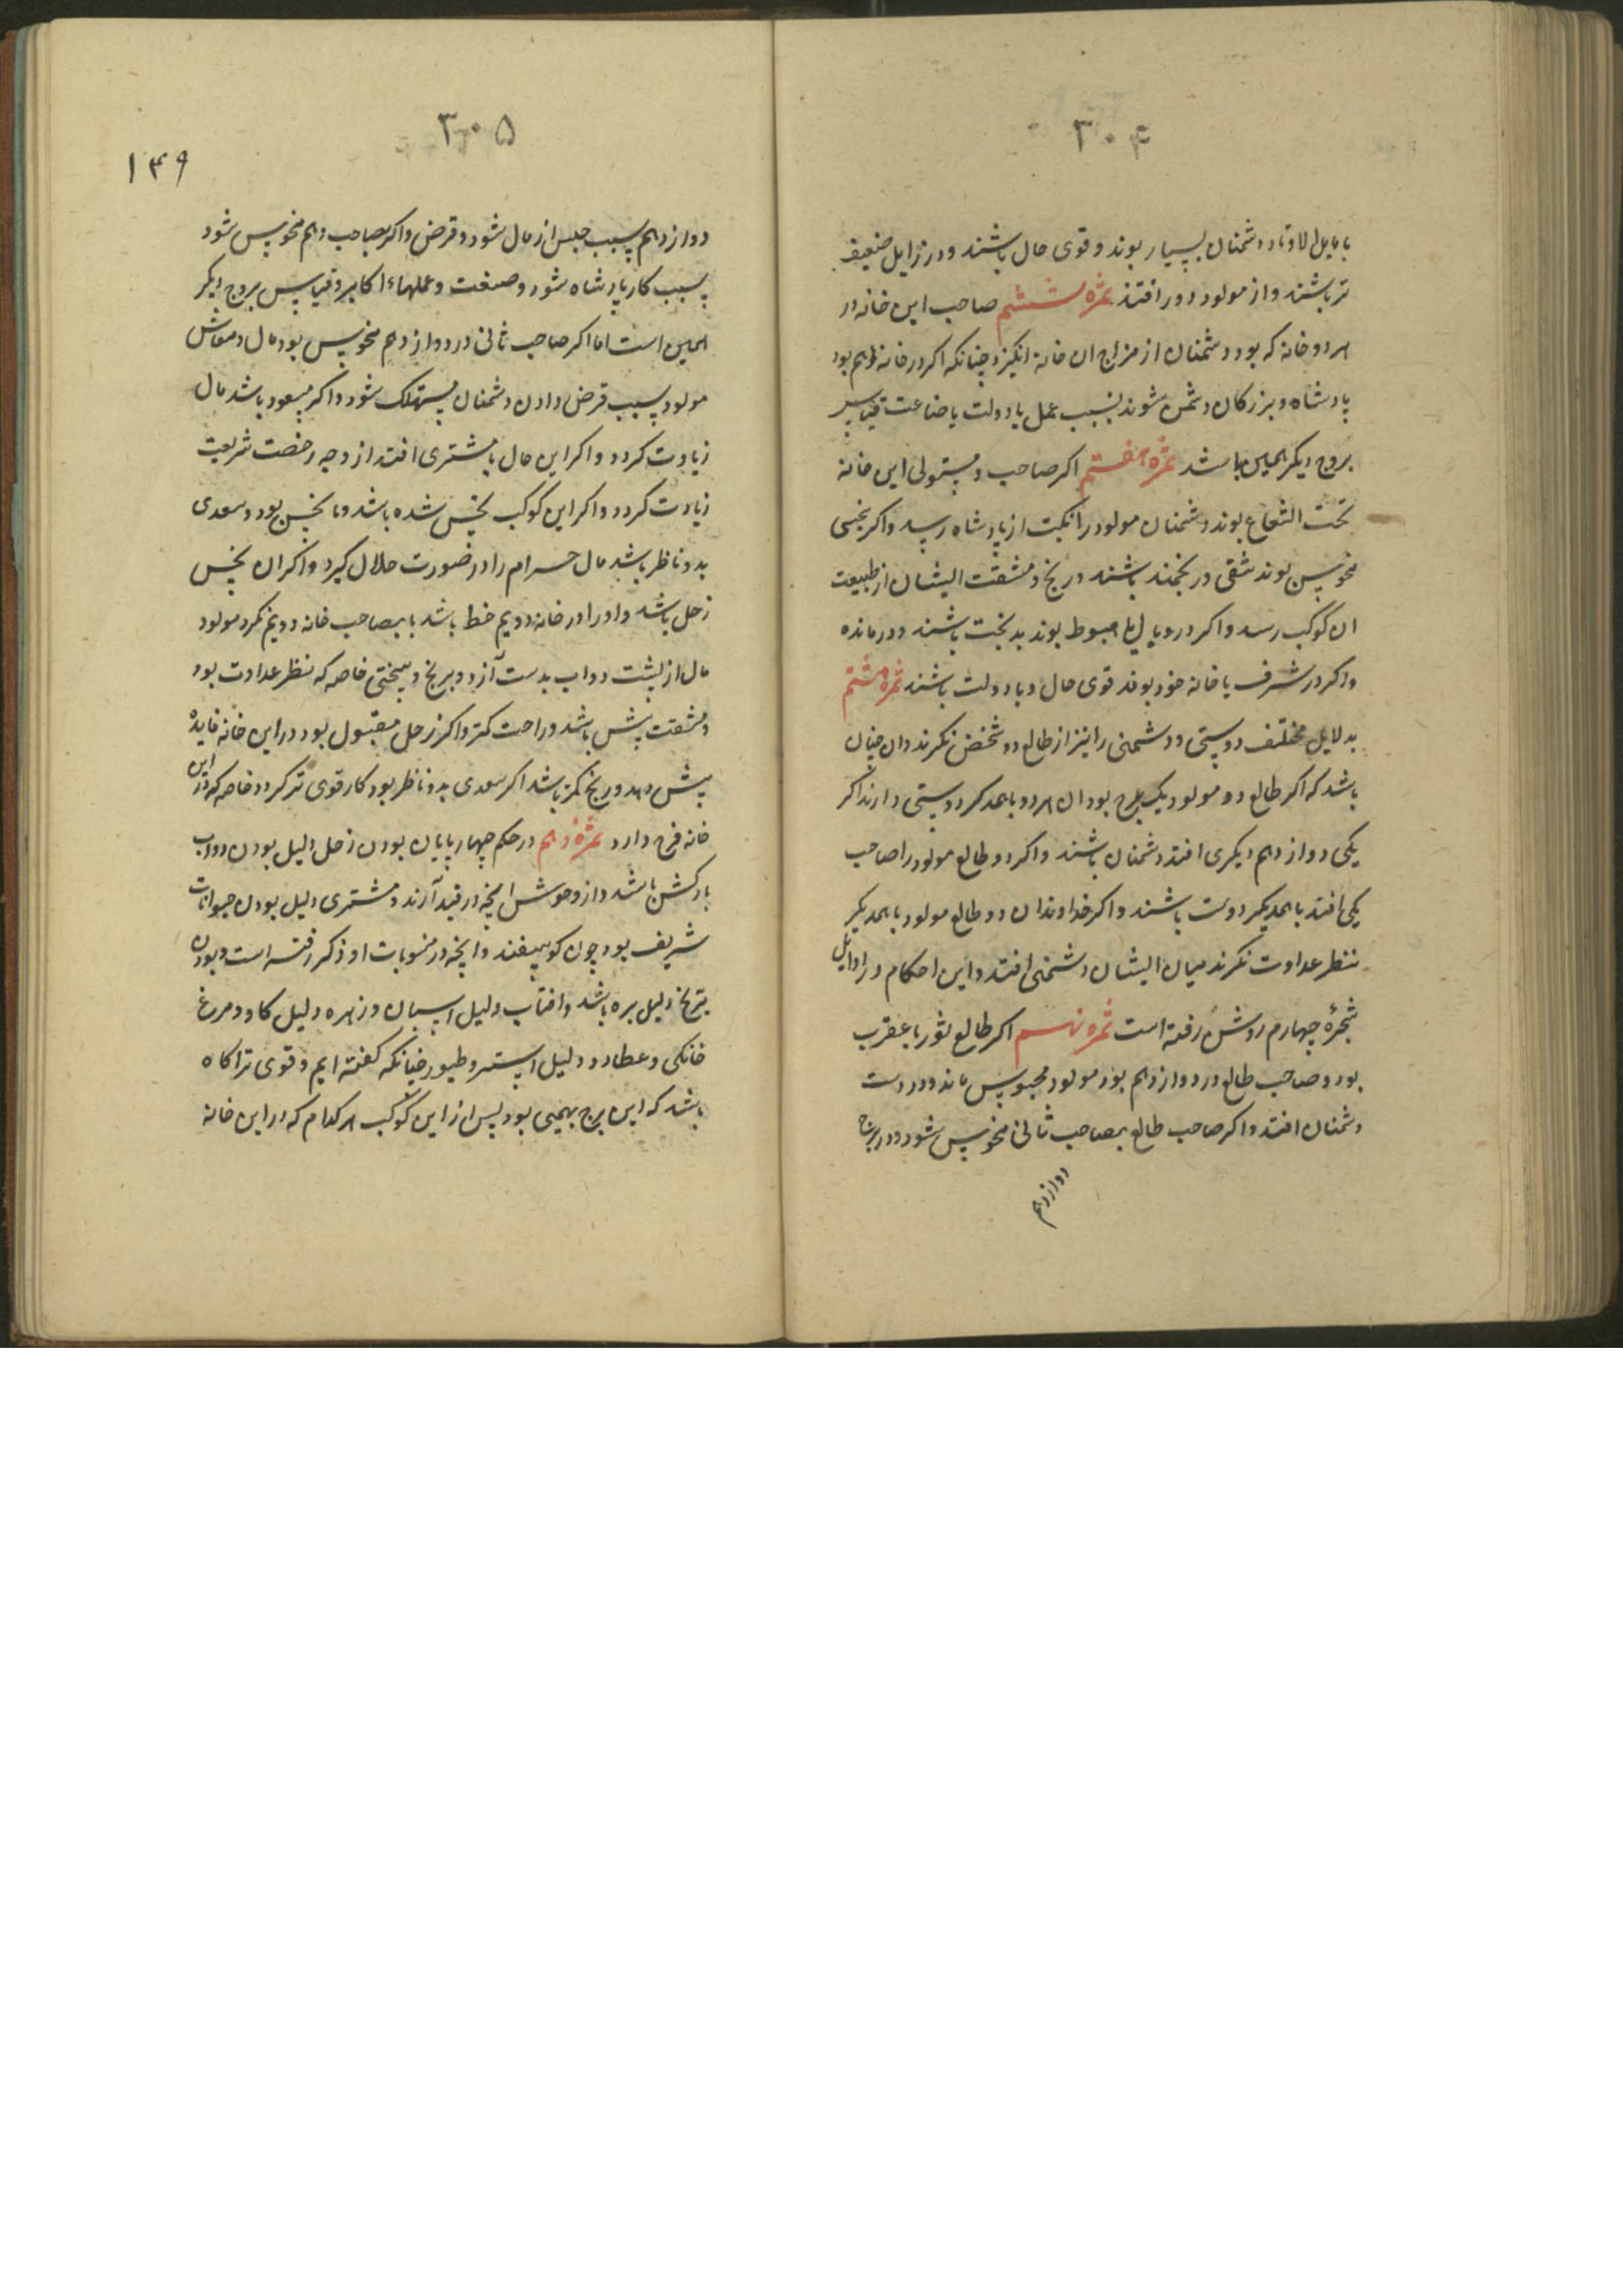 ۳۰۴
با مایل الاوتاد دشمنان بسیار بوند و قوی حال باشند و در زایل ضعیف
تر باشند و از مولود دور افتند ثمره ششم صاحب این خانه در
هر دو خانه که بود دشمنان از مزاج ان خانه انکیزد چنانکه اکر در خانه دهم بود
پادشاه و بزرکان دشمن شوند بسبب عمل یا دولت یا صناعت قیاس
بروج دیکر همین باشد ثمره هفتم اکر صاحب و مستولی این خانه
تحت الشعاع بوند دشمنان مولود را نکبت از پادشاه رسد و اکر بنحسی
منحوس بوند شقی و رنجمند باشند و رنج و مشقت ایشان از طبیعت
ان کوکب رسد و اکر در وبال یا هبوط بوند بدبخت باشند و درمانده
و اکر در شرف یا خانه خود بوند قوی حال و با دولت باشند ثمره هشتم
بدلایل مختلف دوستی و دشمنی را نیز از طالع دو شخص نکرند و ان چنان
باشد که اکر طالع دو مولود یک برج بود ان هر دو با همدکر دوستی دارند اکر
یکی دوازدهم دیکری افتد دشمنان باشند و اکر دو طالع مولود را صاحب
یکی افتد با همدیکر دوست باشند و اکر خداوندان دو طالع مولود با همدیکر
بنظر عداوت نکرند میان ایشان دشمنی افتد و این احکام در اوایل
شجرهٔ چهارم روشن رفته است ثمره نهم اکر طالع ثور یا عقرب
بود و صاحب طالع در دوازدهم بود مولود محبوس ماند و در دست
دشمنان افتد و اکر صاحب طالع بصاحب ثانی منحوس شود و در برج
دوازدهم
۳۰۵
۱۴۹
دوازدهم بسبب حبس از مال شود و قرض و اکر بصاحب دهم منحوس شود
بسبب کار پادشاه شود و صنعت و عملهاء اکابر و قیاس بروج دیکر
همین است اما اکر صاحب ثانی در دوازدهم منحوس بود مال و معاش
مولود بسبب قرض دادن دشمنان مستهلک شود و اکر مسعود باشد مال
زیادت کردد و اکر این حال با مشتری افتد از وجه رخصت شریعت
زیادت کردد و اکر این کوکب نحس شده باشد و با نحس بود و سعدی
بدو ناظر باشد مال حرام را در صورت حلال کیرد و اکر ان نحس
زحل باشد و او را در خانه دویم خط باشد یا بصاحب خانه دویم نکرد مولود
مال از پشت دواب بدست آرد و برنج و سختی خاصه که نظر عداوت بود
و مشقت بیش باشد و راحت کمتر و اکر زحل مقبول بود در این خانه فایدهٔ
بیش دهد و رنج کمتر باشد اکر سعدی بدو ناظر بود کار قوی تر کردد خاصه که در این
خانه فرح دارد ثمرهٔ دهم در حکم چهارپایان بودن زحل دلیل بودن دواب
بارکش باشد و از وحوش انچه در قید آرند و مشتری دلیل بودن حیوانات
شریف بود چون کوسپفند و انچه در منسوبات او ذکر رفته است و بودن
مریخ دلیل بره باشد و افتاب دلیل اسپان و زهره دلیل کاو و مرغ
خانکی و عطارد دلیل استر و طیور چنانکه کفته ایم و قوی تر اکاه
باشد که این برج بهیمی بود پس از این کوکب هر کدام که در این خانه